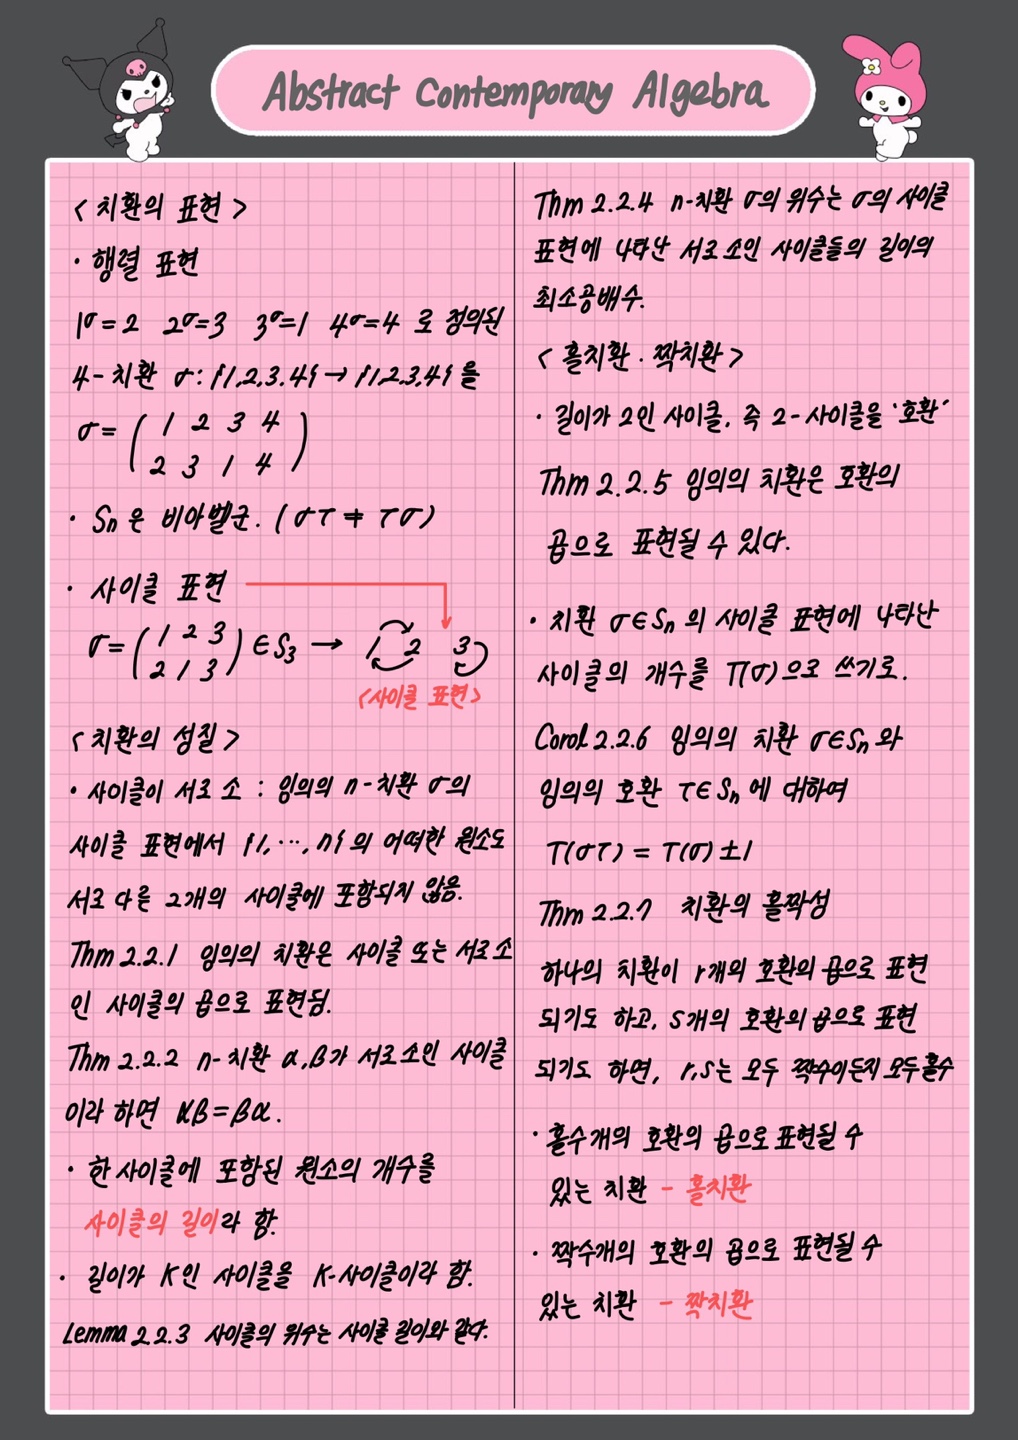 Abstract Contemporary Algebra
< 치환의 표현 >
· 행렬 표현
1^σ=2 2^σ=3 3^σ=1 4^σ=4 로 정의된
4-치환 σ: {1,2,3,4} → {1,2,3,4} 를
σ= ( 1 2 3 4
2 3 1 4 )
· Sn은 비아벨군. (στ ≠ τσ)
· 사이클 표현
σ= ( 1 2 3
2 1 3 ) ∈ S3 → 1 2 3
<사이클 표현>
< 치환의 성질 >
· 사이클이 서로 소 : 임의의 n-치환 σ의
사이클 표현에서 {1, ···, n}의 어떠한 원소도
서로 다른 2개의 사이클에 포함되지 않음.
Thm 2.2.1 임의의 치환은 사이클 또는 서로소
인 사이클의 곱으로 표현됨.
Thm 2.2.2 n-치환 α,β가 서로소인 사이클
이라 하면 αβ=βα.
· 한 사이클에 포함된 원소의 개수를
사이클의 길이라 함.
· 길이가 K인 사이클을 K-사이클이라 함.
Lemma 2.2.3 사이클의 위수는 사이클 길이와 같다.
Thm 2.2.4 n-치환 σ의 위수는 σ의 사이클
표현에 나타난 서로 소인 사이클들의 길이의
최소공배수.
< 홀치환 · 짝치환 >
· 길이가 2인 사이클, 즉 2-사이클을 '호환'
Thm 2.2.5 임의의 치환은 호환의
곱으로 표현될 수 있다.
· 치환 σ∈Sn의 사이클 표현에 나타난
사이클의 개수를 T(σ)으로 쓰기로.
Corol 2.2.6 임의의 치환 σ∈Sn와
임의의 호환 τ∈Sn에 대하여
T(στ) = T(σ) ±1
Thm 2.2.7 치환의 홀짝성
하나의 치환이 r개의 호환의 곱으로 표현
되기도 하고, s개의 호환의 곱으로 표현
되기도 하면, r,s는 모두 짝수이든지 모두 홀수
· 홀수개의 호환의 곱으로 표현될 수
있는 치환 - 홀치환
· 짝수개의 호환의 곱으로 표현될 수
있는 치환 - 짝치환